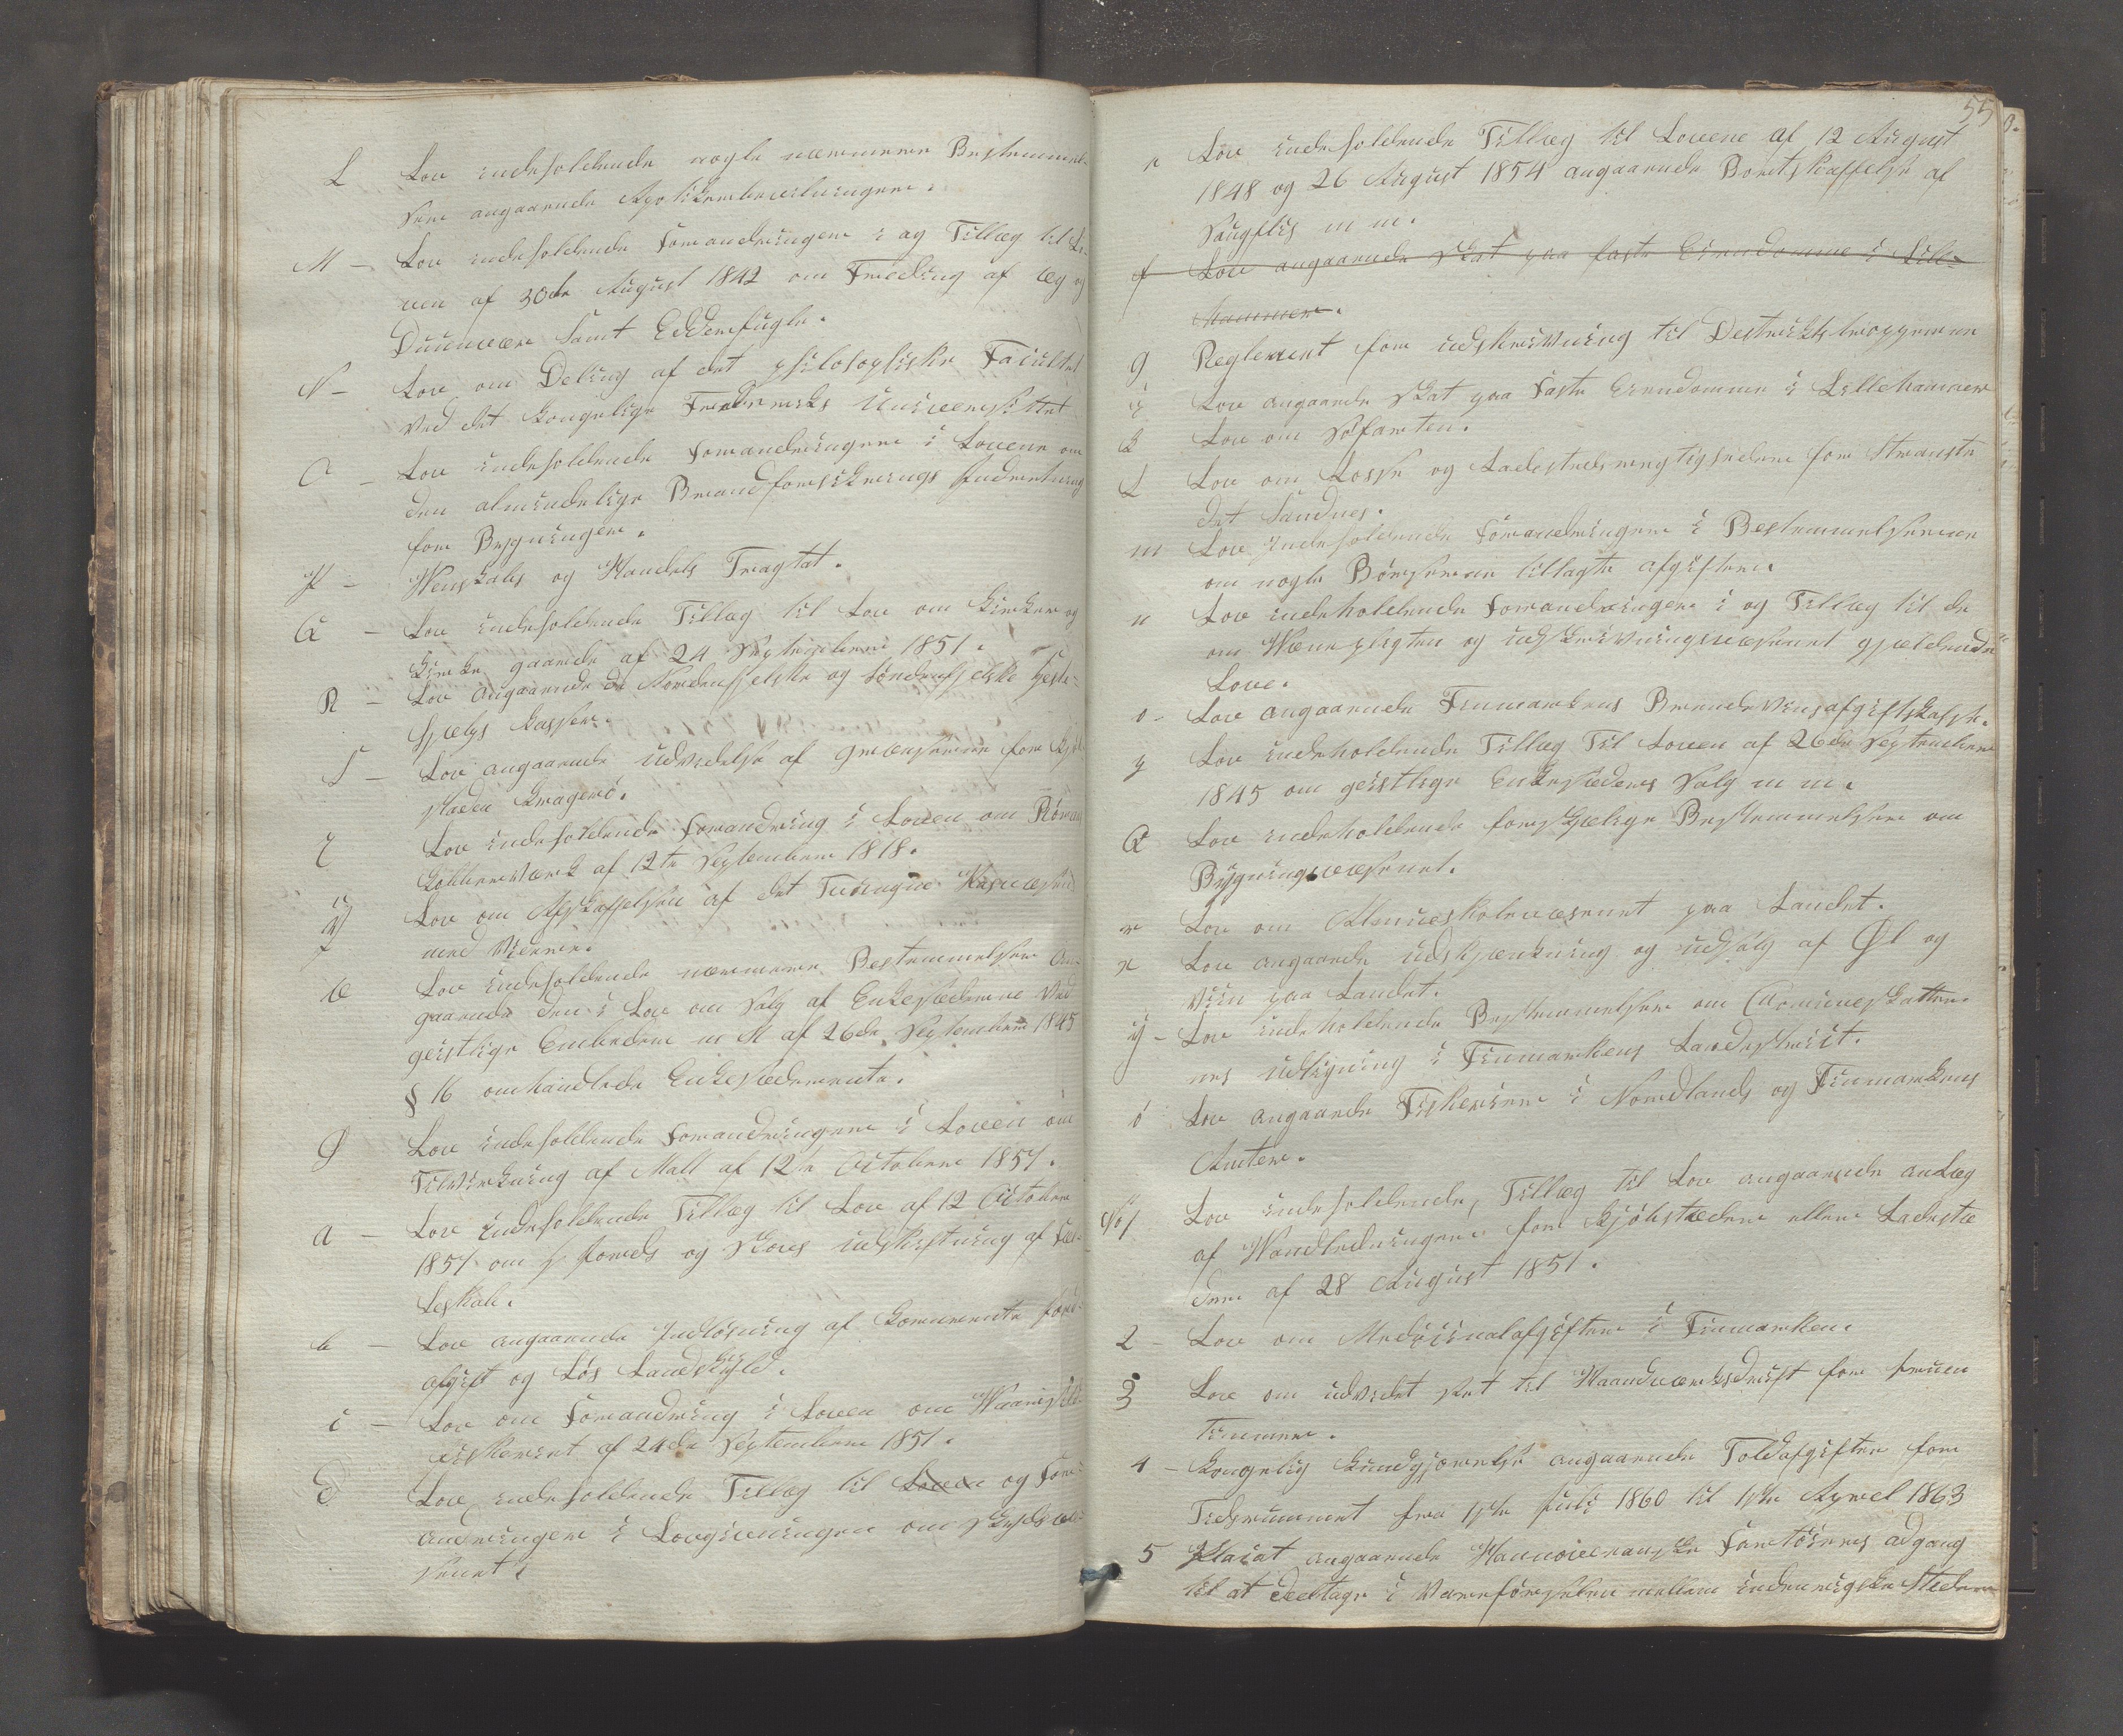 L Lov indeholdende nogle nærmere Bestemmel-
ser angaaende Apothekerbevilninger.
M – Lov indeholdende Forandringer i og Tillæg til Lo-
ven af 30de August 1842 om Freding af Æg og
Duunvær samt Edderfugle.
N – Lov om Deling af det philosophiske Facultet
ved det kongelige Frederiks Universitet
O – Lov indeholdende Forandringer i Lovene om
den almindelige Brandforsikrings Indretning
for Bygninger.
P – Venskabs og Handels Tragtat.
Q – Lov indeholdende Tillæg til Lov om Kirker og
Kirke gaarde af 24 September 1851.
R – Lov angaaende de Nordenfjelske og søndenfjelske
hjælps Kasser.
S – Lov angaaende Udvidelse af Grændserne for Kjøb
staden Kragerø.
T Lov indeholdende Forandring i Loven om Røraas
Kobberværk af 12te September 1818.
Lov om Afskaffelsen af det
med videre.
Æ Lov indeholdende nærmere Bestemmelser an-
gaaende den i Lov om Salg af Enkesæderne ved
geistlige Embeder m M af 26de September 1845
§ 16 omhandlede Enkesæderente.
Ø Lov indeholdende Forandringer i Loven om
Tilvirkning af Malt af 12te October 1857.
a – Lov indeholdende Tillæg til Lov af 12 October
1857 om Jords og Skovs Udskiftning af Fæl-
leskab.
b – Lov angaaende Indløsning af Kornrente Jord-
afgift og Løs Landskyld.
c – Lov om Forandring i Loven om Vaarsild-
fiskeriet af 24de September 1851.
d Lov indeholdende Tillæg til Loven og For-
andringer i Lovgivningen om Skydsvæ-
senet
55
e Lov indeholdende Tillæg til Lovene af 12 August
1848 og 26 August 1854 angaaende Bortskaffelse af
Saugflis m m.
f Lov angaaende Skat paa faste Eiendomme i Lille-
hammer.
g Reglement for Udskrivning til Destriktstropperne
i Lov angaaende Skat paa Faste Eiendomme i Lillehammer
k Lov om Søfarten.
l Lov om Losse og Ladestedsregtighederne for Strandste
det Sandnes.
m Lov Indeholdende Forandringer i Bestemmelserne
om nogle Børserne tillagte afgifter.
n Lov indeholdende Forandringer i og Tillæg til de
om Værnepligten og udskrivningsvæsenet gjældende
Love.
o – Lov angaaende Finmarkens Brændeviinsafgiftskasse.
p Lov indeholdende Tillæg til Loven af 26de September
1845 om geistlige Enkesæders Salg m m.
Q Lov indeholdende forskjelige Bestemmelser om
Bygningsvæsenet.
r Lov om Almueskolevæsenet paa Landet.
x Lov angaaende udskjænkning og udsalg af Øl og
Viin paa Landet.
y – Lov indeholdende Bestemmelser om Comuneskatter-
nes udligning i Finmarkens Landdistrict.
ø Lov angaaende Fiskerierne i Nordlands og Finmarkens
Amter.
Lov indeholdende, Tillæg til Lov angaaende anlæg
af Vandledninger for Kjøbstæder eller Ladestæ
der af 28 August 1851.
2 – Lov om Medicinalafgifter i Finmarken.
3 Lov om udvidet Ret til Haandværksdrift for Fruen
timmer.
4 – Kongelig Kundgjørelse angaaende Toldafgifter for
Tidsrummet fra 1ste Juli 1860 til 1ste April 1863
5 Placat angaaende Hannoveranske Fartøiers adgang
til at deeltage i Vareførselen mellem indenrigske Steder